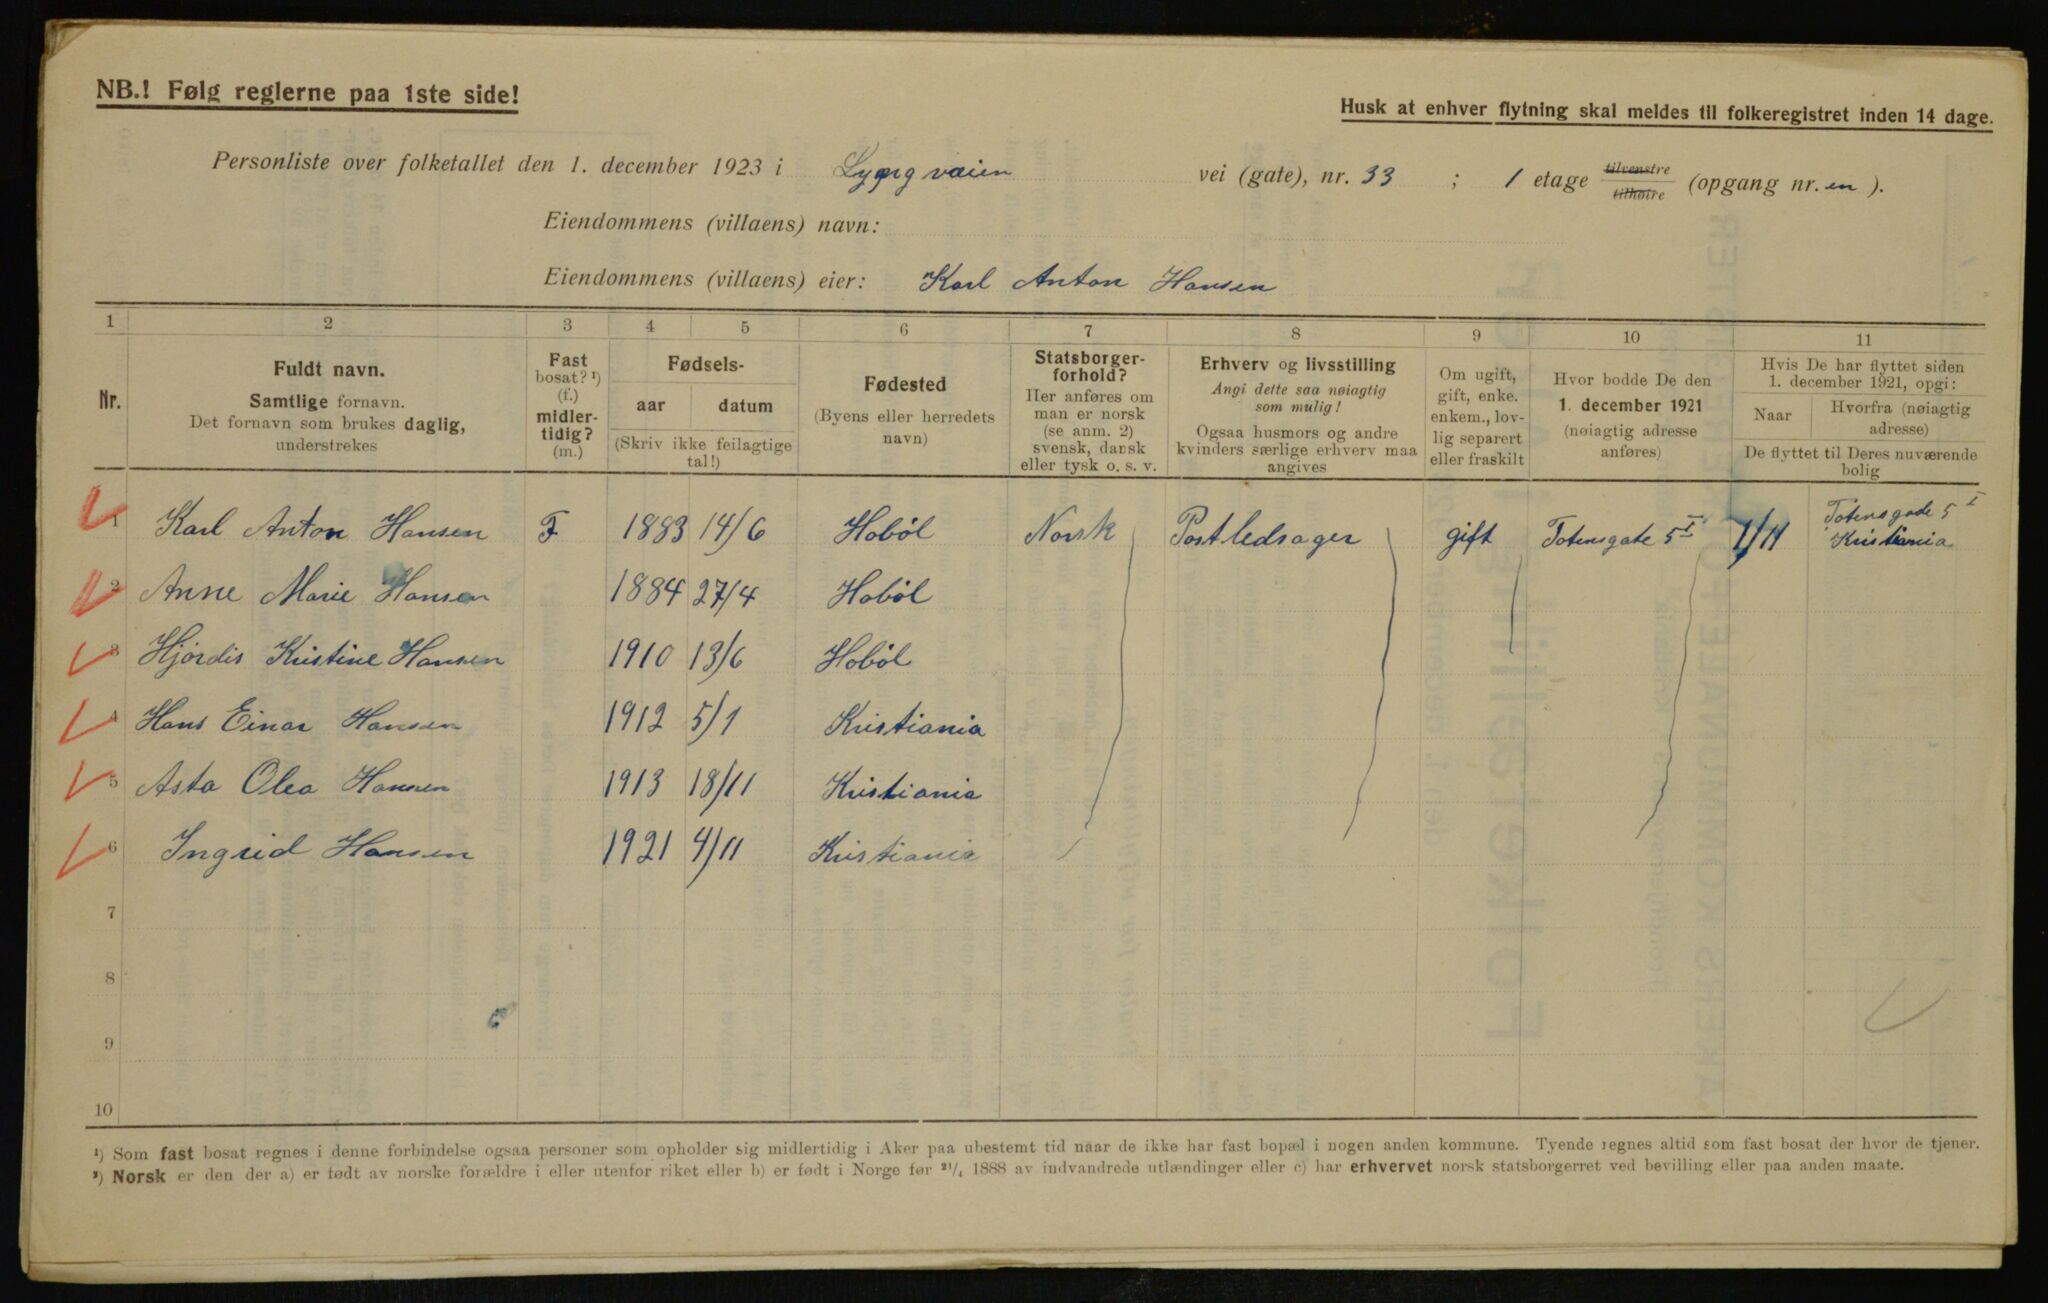 NB.! Følg reglerne paa 1ste side!
Husk at enhver flytning skal meldes til folkeregistret inden 14 dage.
Personliste over folketallet den 1. december 1923 i Lyngvæien vei (gate), nr. 33 ; 1 etage tilvenstre tilhøire (opgang nr. en ).
Eiendommens (villaens) navn:
Eiendommens (villaens) eier: Karl Anton Hansen
1 2 3 4 5 6 7 8 9 10 11
Nr.
Fuldt navn.
Samtlige fornavn.
Det fornavn som brukes daglig,
understrekes
Fast
bosat? ¹)
(f.)
midler-
tidig?
(m.)
Fødsels-
aar datum
(Skriv ikke feilagtige
tal!)
Fødested
(Byens eller herredets
navn)
Statsborger-
forhold?
Her anføres om
man er norsk
(se anm. 2)
svensk, dansk
eller tysk o. s. v.
Erhverv og livsstilling
Angi dette saa nøiagtig
som mulig!
Ogsaa husmors og andre
kvinders særlige erhverv maa
angives
Om ugift,
gift, enke.
enkem., lov-
lig separert
eller fraskilt
Hvor bodde De den
1. december 1921
(nøiagtig adresse
anføres)
Hvis De har flyttet siden
1. december 1921, opgi:
Naar
Hvorfra (nøiagtig
adresse)
De flyttet til Deres nuværende
bolig
1 Karl Anton Hansen F 1883 14/6 Hobøl Norsk Postledsager gift Totensgate 5 I 1/11 Totensgade 5 I
Kristiania
2 Anne Marie Hansen 1884 27/4 Hobøl
3 Hjørdis Kristine Hansen 1910 13/6 Hobøl
4 Hans Einar Hansen 1912 5/1 Kristiania
5 Asta Olea Hansen 1913 18/11 Kristiania
6 Ingrid Hansen 1921 4/11 Kristiania
7
8
9
10
¹) Som fast bosat regnes i denne forbindelse ogsaa personer som opholder sig midlertidig i Aker paa ubestemt tid naar de ikke har fast bopæl i nogen anden kommune. Tyende regnes altid som fast bosat der hvor de tjener.
²) Norsk er den der a) er født av norske forældre i eller utenfor riket eller b) er født i Norge før ²¹/₄ 1888 av indvandrede utlændinger eller c) har erhvervet norsk statsborgerret ved bevilling eller paa anden maate.